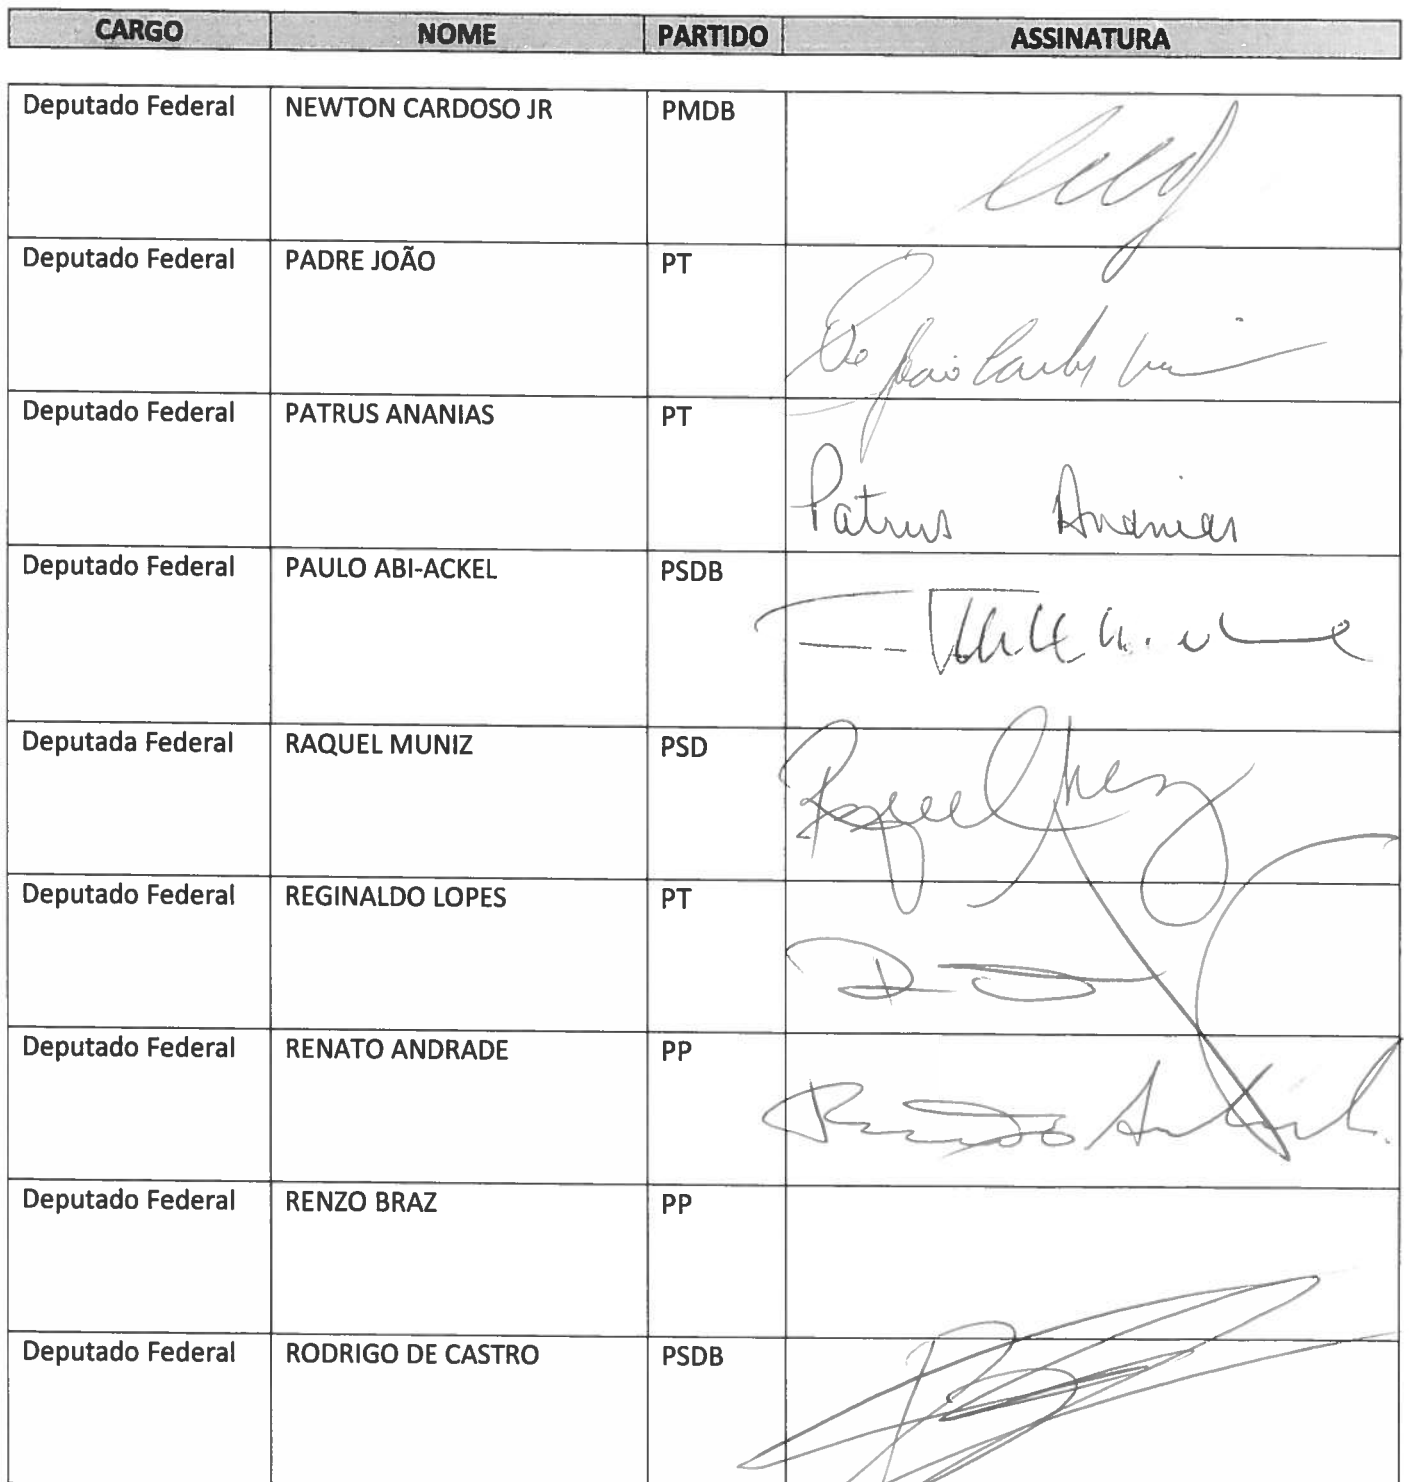 CARGO NOME PARTIDO ASSINATURA
Deputado Federal NEWTON CARDOSO JR PMDB
Deputado Federal PADRE JOÃO PT
Pe João Carlos
Deputado Federal PATRUS ANANIAS PT
Patrus Ananias
Deputado Federal PAULO ABI-ACKEL PSDB
Deputada Federal RAQUEL MUNIZ PSD
Raquel Muniz
Deputado Federal REGINALDO LOPES PT
Deputado Federal RENATO ANDRADE PP
Renato Andrade
Deputado Federal RENZO BRAZ PP
Deputado Federal RODRIGO DE CASTRO PSDB